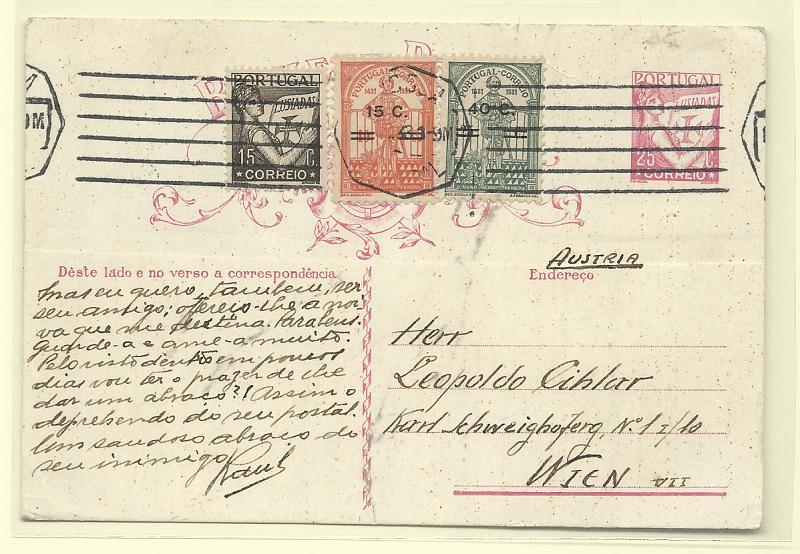 PORTUGAL
LUSIADAS
15 C.
CORREIO
PORTUGAL-CORREIO
1431 1931
15 C.
PORTUGAL-CORREIO
1431 1931
40 C.
PORTUGAL
LUSIADAS
25 C.
CORREIO
Dêste lado e no verso a correspondência
mas eu quero, tambem, ser
seu amigo; ofereço-lhe a noi-
va que me destina. Parabens.
Guarde-a e ame-a muito.
Pelo visto dentro em poucos
dias vou ter o prazer de lhe
dar um abraço?! Assim o
deprehendo do seu postal.
Um saudoso abraço do
seu inimigo
Raul
AUSTRIA
Endereço
Herr
Leopoldo Cihlar
Karl Schweighoferg. Nº 1 I/10
WIEN VII